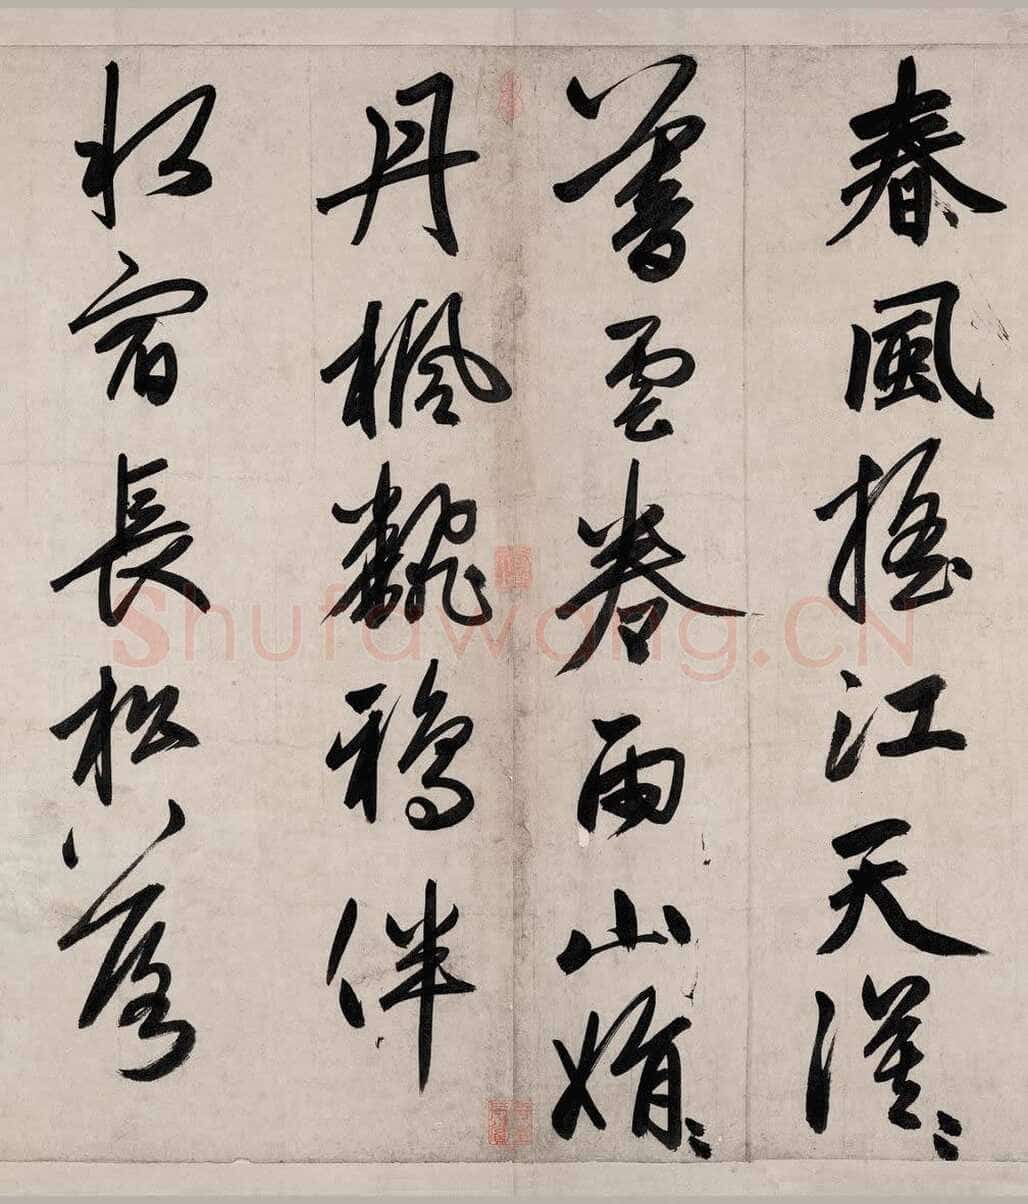 春風搖江天漠〻
暮雲卷雨山娟〻
丹楓飜鴉伴
水宿長松落
Shufawang.CN